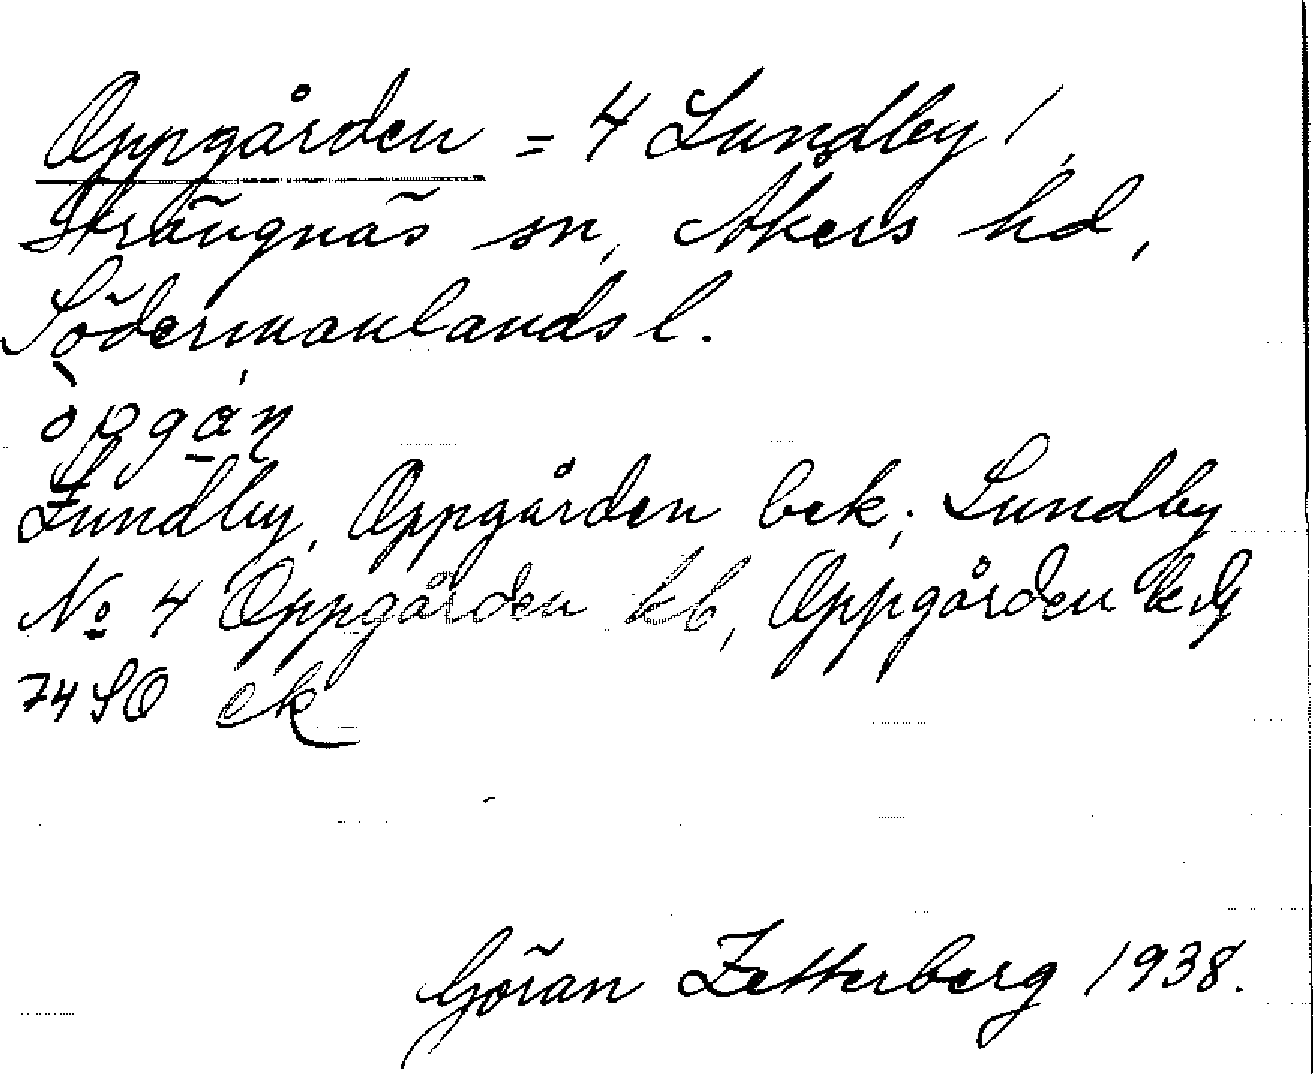 Oppgården = 4 Lundby /,
Strängnäs sn, Åkers hd,
Södermanlands l.
òpgá̠n
Lundby, Oppgården bek; Lundby
No 4 Oppgården kb, Oppgården
74 SO ek
Göran Zetterberg 1938.